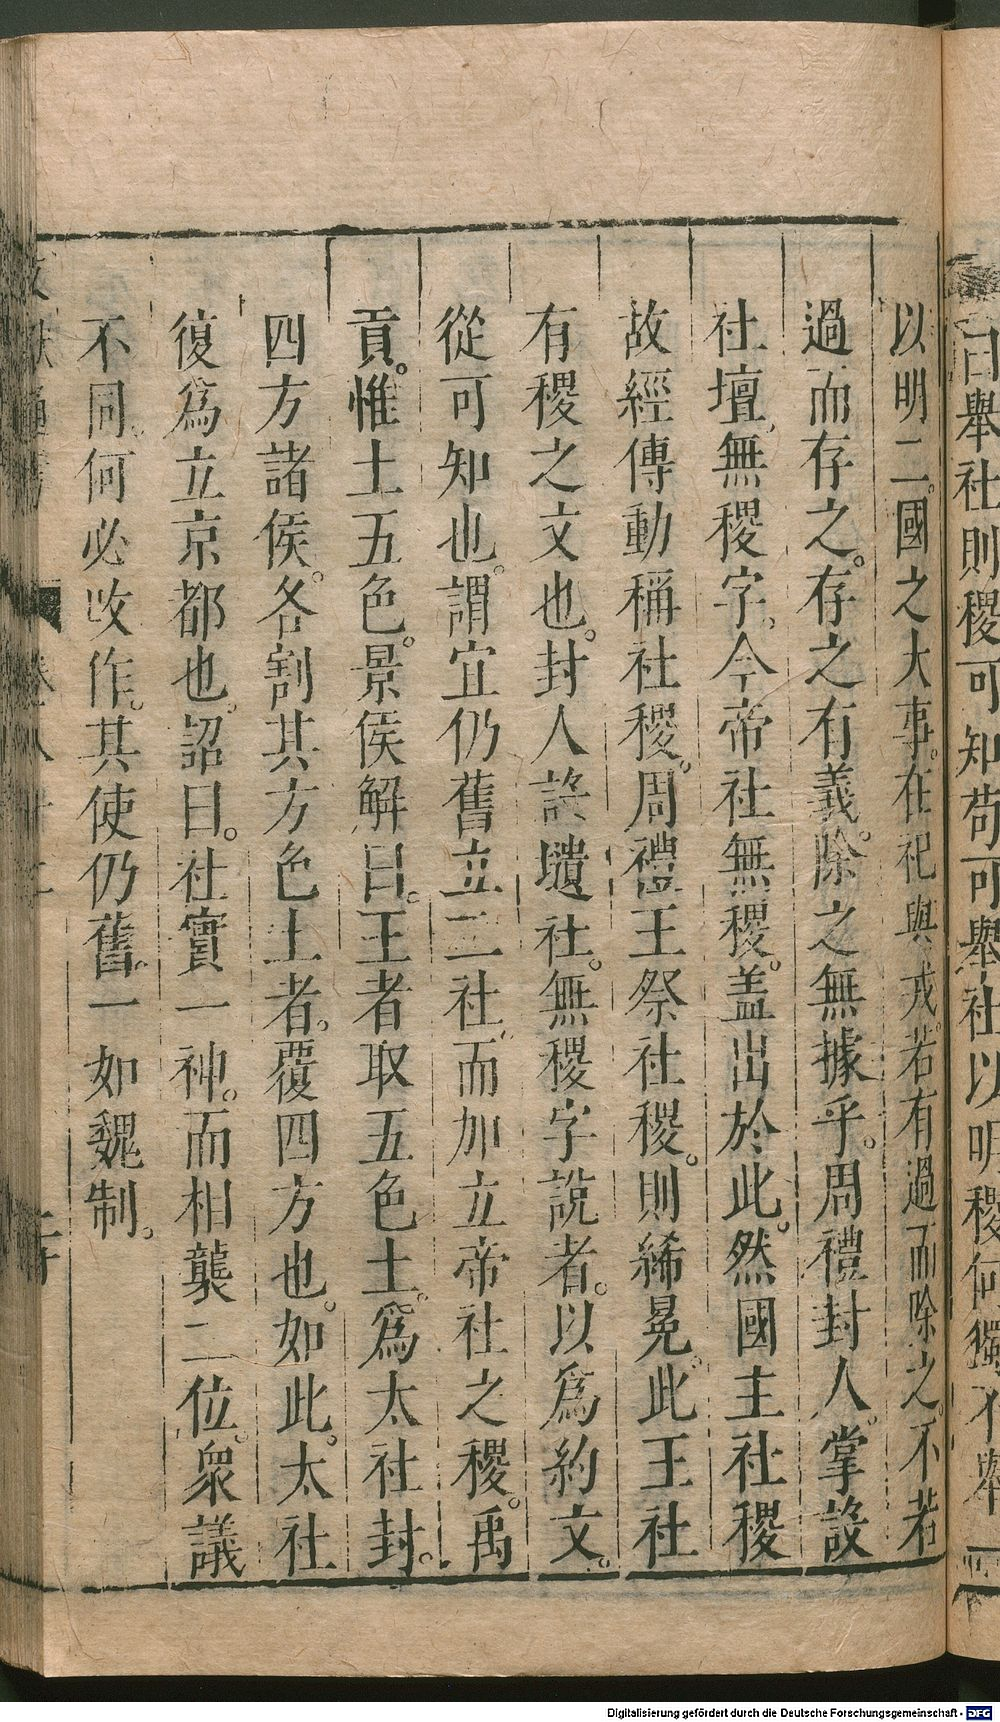 曰舉社則稷可知苟可舉社以明稷何獨不舉
以明二。國之大事。在祀與戎。若有過而除之。不若
過而存之。存之有義。除之無據乎。周禮封人。掌設
社壇。無稷字。今帝社無稷。蓋出於此。然國主社稷
故經傳動稱社稷。周禮王祭社稷。則絺冕。此王社
有稷之文也。封人設壝社。無稷字說者。以為約文。
從可知也。謂宜仍舊立二社。而加立帝社之稷。禹
貢。惟土五色。景侯解曰。王者取五色土。為太社封。
四方諸侯。各割其方色土者。覆四方也。如此。太社
復為立京都也。詔曰。社實一神。而相襲二位。衆議
不同。何必改作。其使仍舊。一如魏制。
Digitalisierung gefördert durch die Deutsche Forschungsgemeinschaft - DFG